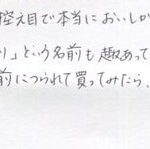 控え目で本当においしか
り」という名前も趣あって
前につられて買ってみたら、